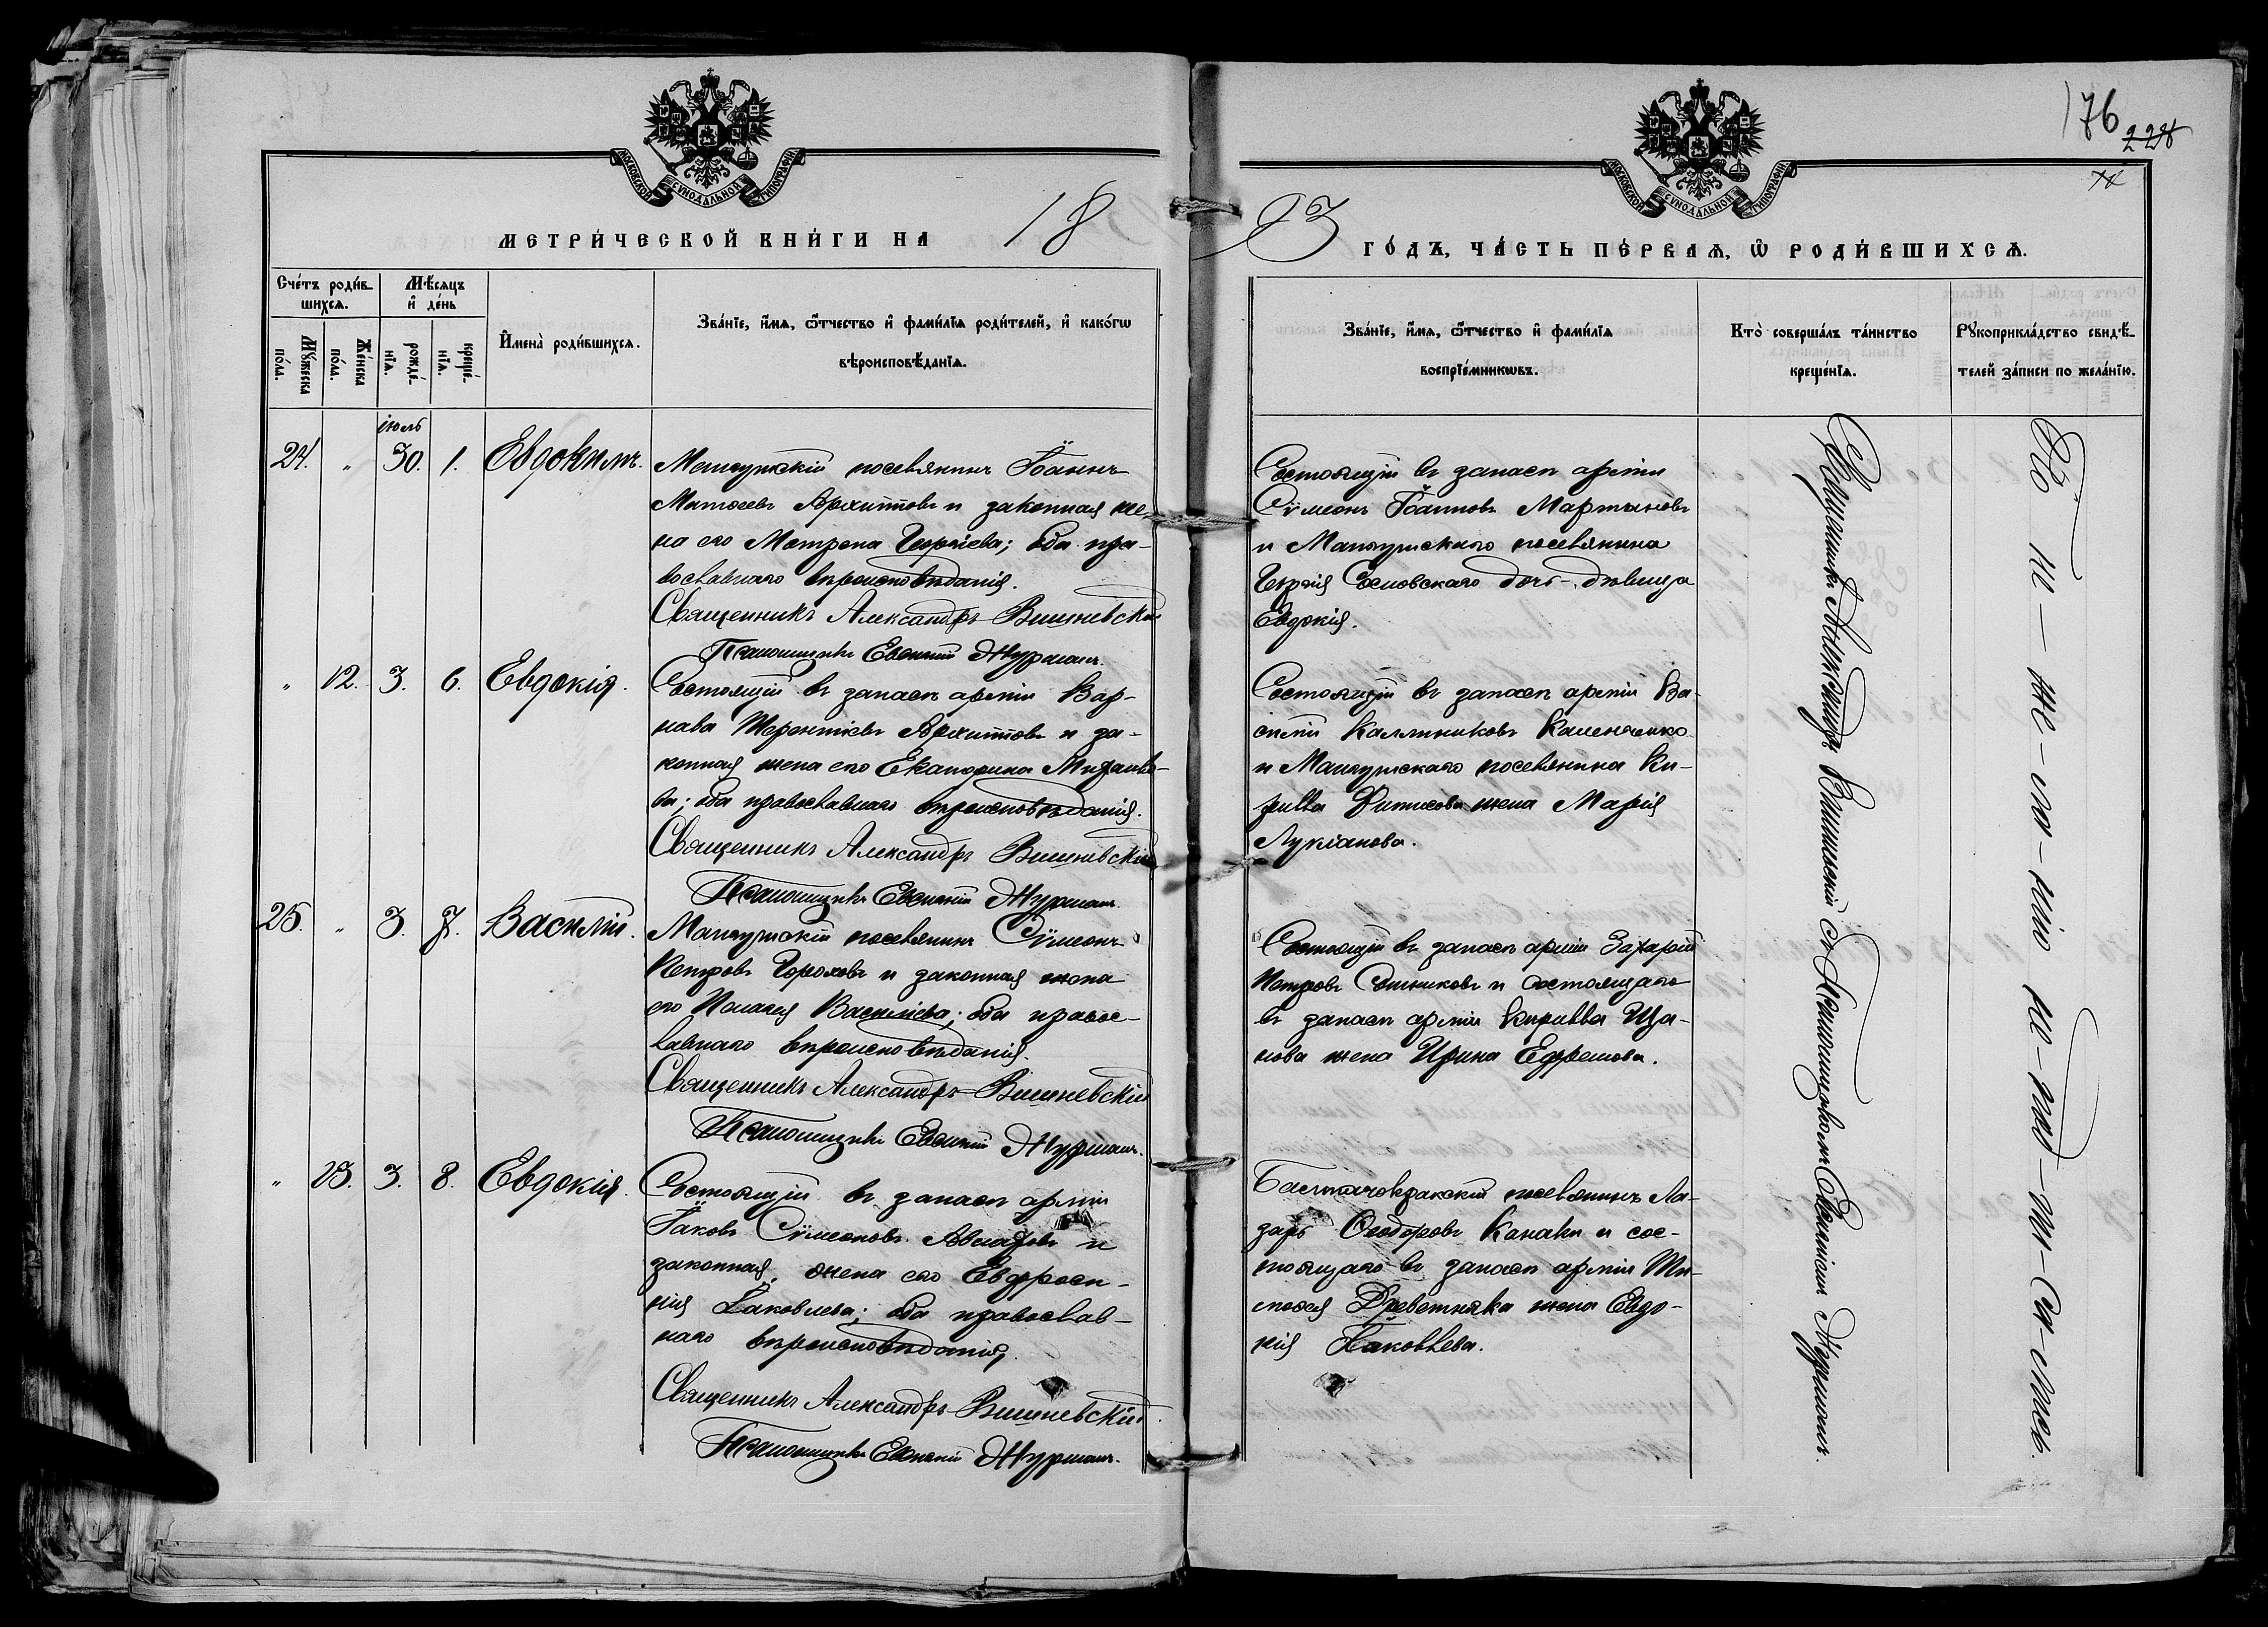 176
228
МОСКОВСКОЙ СѴНОДАЛЬНОЙ ТИПОГРАФІИ
МОСКОВСКОЙ СѴНОДАЛЬНОЙ ТИПОГРАФІИ
МЕТРИ́ЧЕСКОЙ КНИ́ГИ НА 18
93 ГО́ДЪ, ЧА́СТЬ ПЕ́РВАѦ, Ѡ҆ РОДИ́ВШИХСѦ.
Сче́тъ роди́в-
шихсѧ.
Мѣ́сѧцъ
и҆ де́нь
Мꙋ́жеска
по́ла.
Же́нска
по́ла.
рожде́-
нїѧ.
креще́-
нїѧ.
И҆мена̀ роди́вшихсѧ.
Зва́нїе, и҆́мѧ, ѻ҆́тчество и҆ фами́лїѧ роди́телей, и҆ како́гѡ
вѣроисповѣ́данїѧ.
Зва́нїе, и҆́мѧ, ѻ҆́тчество и҆ фами́лїѧ
воспрїе́мникѡвъ.
Кто̀ соверша́лъ та́инство
креще́нїѧ.
Рꙋкоприкла́дство свидѣ́-
телей за́писи по жела́нїю.
іюль
24. " 30. 1. Евдокимъ.
Мангушскій поселянинъ Іоаннъ
Матѳеевъ Архиптовъ и законная же-
на его Матрона Георгіева; оба пра-
вославнаго вѣроисповѣданія.
Священникъ Александръ Вишневскій
Псаломщикъ Евѳимій Журманъ.
Состоящій въ запасѣ арміи
Сѵмеонъ Іоанновъ Мартыновъ
и Мангушскаго поселянина
Георгія Сосновскаго дочь - дѣвица
Евдокія.
" 12. 3. 6. Евдокія.
Состоящій въ запасѣ арміи Вар-
нава Терентіевъ Архиптовъ и за-
конная жена его Екатерина
ва; оба православнаго вѣроисповѣданія.
Священникъ Александръ Вишневскій
Псаломщикъ Евѳимій Журманъ.
Состоящій въ запасѣ арміи Ва-
силій Каллиниковъ
и Мангушскаго поселянина Ки-
рилла жена Марія
Лукіанова.
25. " 3. 7. Василій.
Мангушскій поселянинъ Сѵмеонъ
Петровъ Гороховъ и законная жена
его Пелагея Василіева; оба правос-
лавнаго вѣроисповѣданія.
Священникъ Александръ Вишневскій
Псаломщикъ Евѳимій Журманъ.
Состоящій въ запасѣ арміи Захарій
Петровъ и состоящаго
въ запасѣ арміи Кирилла Ща-
нова жена Ирина Ефремова.
" 13. 3. 8. Евдокія.
Состоящій въ запасѣ арміи
Іаковъ Сѵмеоновъ и
законная жена его Евфроси-
нія Іаковлева; оба православ-
наго вѣроисповѣданія,
Священникъ Александръ Вишневскій
Псаломщикъ Евѳимій Журманъ.
поселянинъ Ла-
зарь Ѳеодоровъ Канаки и сос-
тоящаго въ запасѣ арміи Ти-
моѳея Древетняка жена Евдо-
кія Іаковлева.
Священникъ Александръ Вишневскій съ Псаломщикомъ Евѳиміемъ Журманъ.